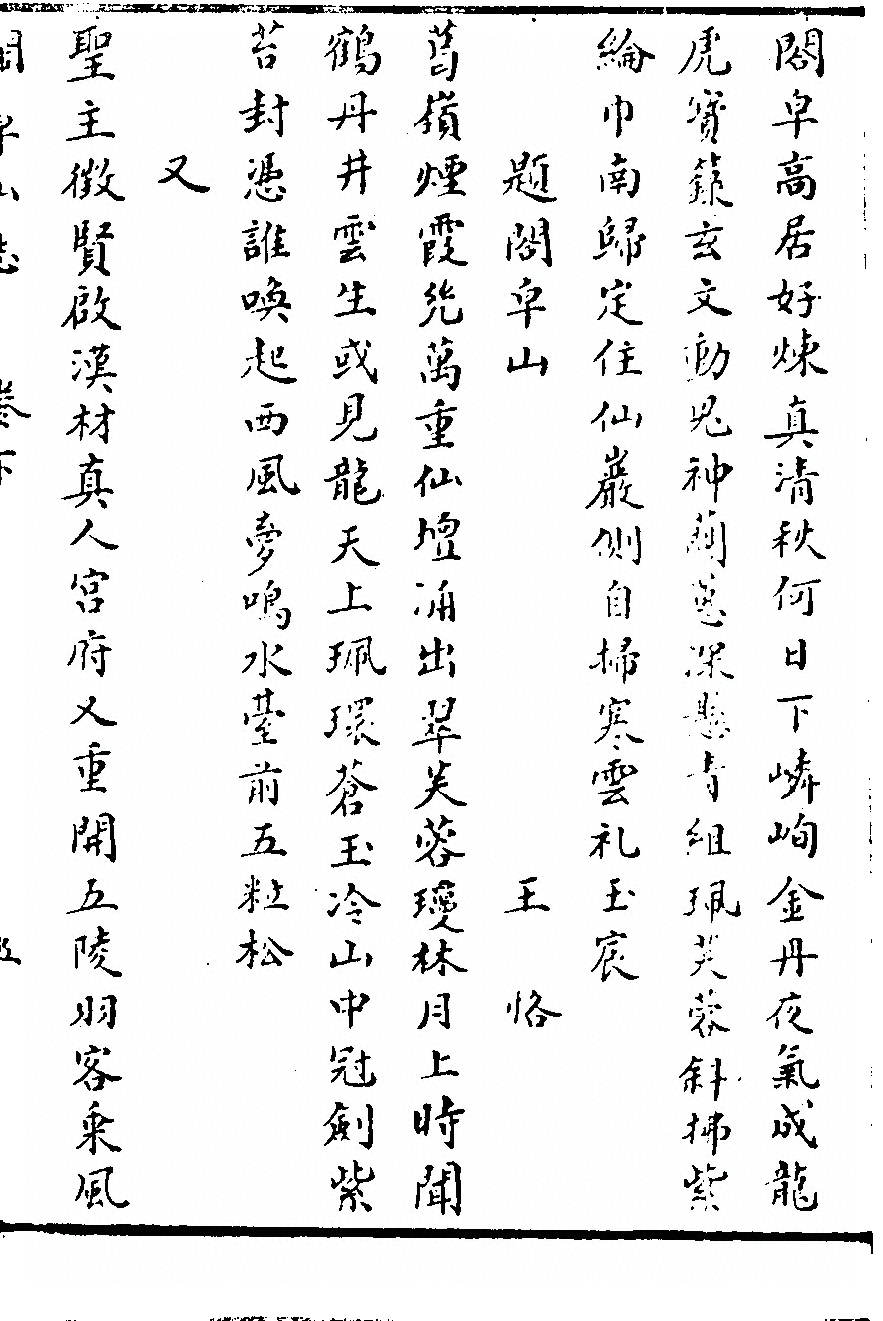 閤皁高居好煉真清秋何日下嶙峋金丹夜氣成龍
虎寶籙玄文動鬼神蘭蔥深懸青組珮芙蓉斜拂紫
綸巾南歸定住仙巖側自掃寒雲礼玉宸
題閤皁山 王恪
葛嶺煙霞幾萬重仙壇涌出翠芙蓉瓊林月上時聞
鶴丹井雲生或見龍天上珮環蒼玉冷山中冠劍紫
苔封憑誰喚起西風夢鳴水臺前五粒松
又
聖主徴賢啟漢材真人宮府又重開五陵羽客乘風
閤皁山志 卷下